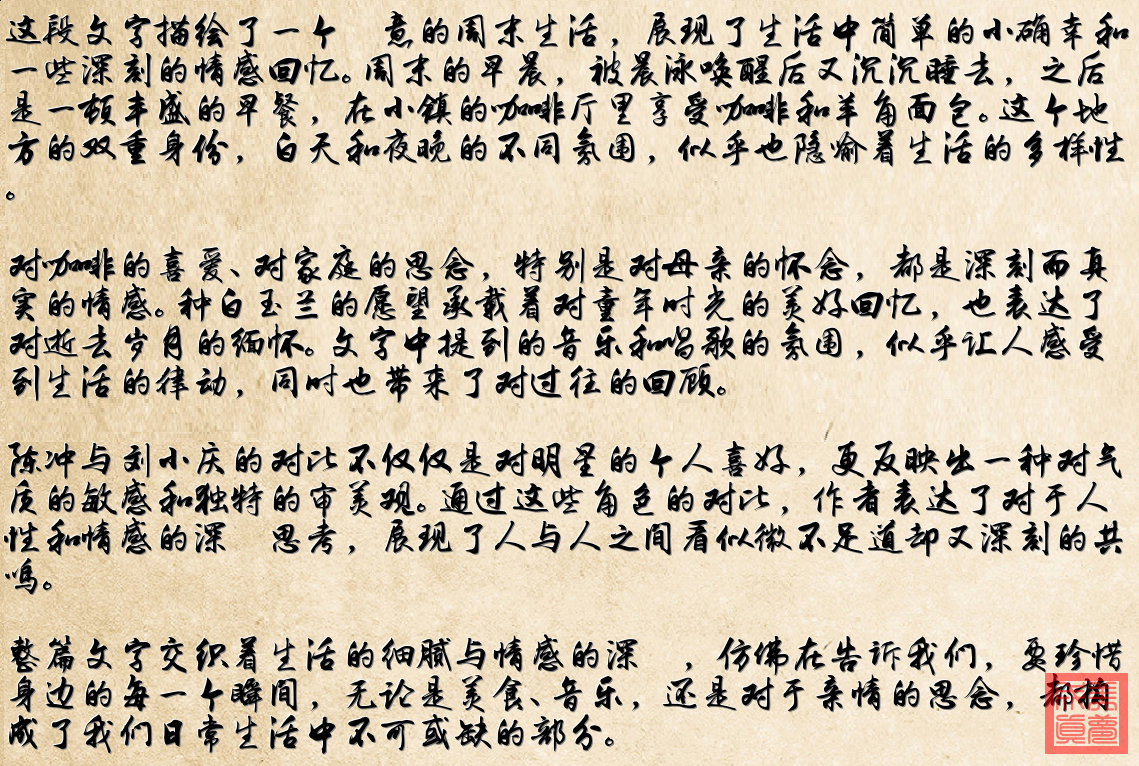 这段文字描绘了一个 意的周末生活，展现了生活中简单的小确幸和
一些深刻的情感回忆。周末的早晨，被晨泳唤醒后又沉沉睡去，之后
是一顿丰盛的早餐，在小镇的咖啡厅里享受咖啡和羊角面包。这个地
方的双重身份，白天和夜晚的不同氛围，似乎也隐喻着生活的多样性
。
对咖啡的喜爱、对家庭的思念，特别是对母亲的怀念，都是深刻而真
实的情感。种白玉兰的愿望承载着对童年时光的美好回忆，也表达了
对逝去岁月的缅怀。文字中提到的音乐和唱歌的氛围，似乎让人感受
到生活的律动，同时也带来了对过往的回顾。
陈冲与刘小庆的对比不仅仅是对明星的个人喜好，更反映出一种对气
质的敏感和独特的审美观。通过这些角色的对比，作者表达了对于人
性和情感的深 思考，展现了人与人之间看似微不足道却又深刻的共
鸣。
整篇文字交织着生活的细腻与情感的深 ，仿佛在告诉我们，要珍惜
身边的每一个瞬间，无论是美食、音乐，还是对于亲情的思念，都构
成了我们日常生活中不可或缺的部分。